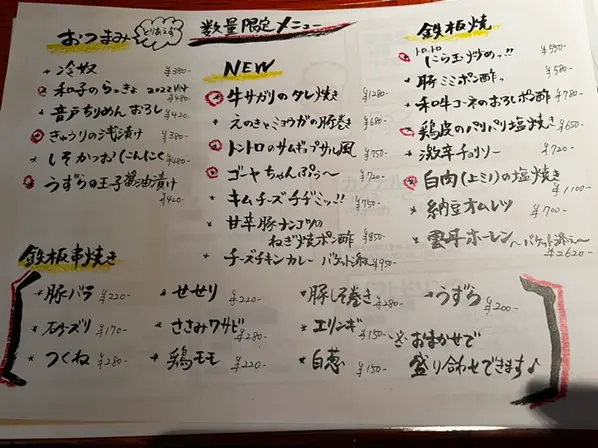 数量限定メニュー
おつまみ とりあえず
* 冷奴 ¥380-
和子のらっきょ 2022 ¥480-
* 音戸ちりめんおろし ¥420-
きゅうりの浅漬け ¥380-
* しそかつお にんにく ¥480-
うずらの玉子醤油漬け ¥420-
NEW
牛サガリのタレ焼き ¥1280-
* えのきとミョウガの豚巻き ¥680-
トントロのサムギョプサル風 ¥750-
ゴーヤちゃんぷるー ¥720-
* キムチーズチヂミッ!! ¥750-
* 甘辛豚ナンコツの
ねぎ焼ポン酢 ¥850-
* チーズチキンカレー バケット添え ¥950-
鉄板焼
トロトロ
にら玉炒めっ!! ¥550-
* 豚ミミポン酢っ ¥580-
* 和牛コーネのおろしポン酢 ¥780-
鶏皮のパリパリ塩焼き ¥650-
* 激辛チョリソー ¥720-
白肉(上ミノ)の塩焼き ¥1100-
* 納豆オムレツ ¥700-
* 雲丹ホーレン〜バケット添え〜 ¥2620-
鉄板串焼き
* 豚バラ ¥220-
* せせり ¥220-
* 豚しそ巻き ¥280-
* うずら ¥200-
* 砂ズリ ¥170-
* ささみワサビ ¥280-
* エリンギ ¥150-
* つくね ¥280-
* 鶏モモ ¥220-
* 白葱 ¥150-
※おまかせで
盛り合わせできます♪